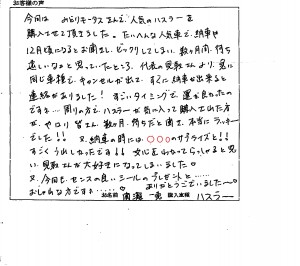 お客様の声
今日は みどりモータースさんで、人気のハスラーを
購入させて頂きました。たいへんな人気車で、納車や
12月頃になると お聞きし、ビックリしてしまい、数ヶ月間、待ち
遠しいなぁと思っていたところ、代表の見取さんより、急に
同じ車種で、キャンセルが出て、すぐに納車が出来ると
連絡がありました! すごいタイミングで、運が良かったの
ですネ… 周りの方で、ハスラーが気に入って購入された方
が、やはり皆さん、数ヶ月、待ちだと聞て、本当にラッキー
でした!! 又、納車の時には、○○○のサプライズと!!
すごくうれしかったです!! 女心をわかってらっしゃると思
い、見取さんが大好きになってしまいました。
又、今日も、センスの良いシールのプレゼントと……
おしゃれな方ですネ…… ありがとうございました〜
お名前 購入車種 ハスラー